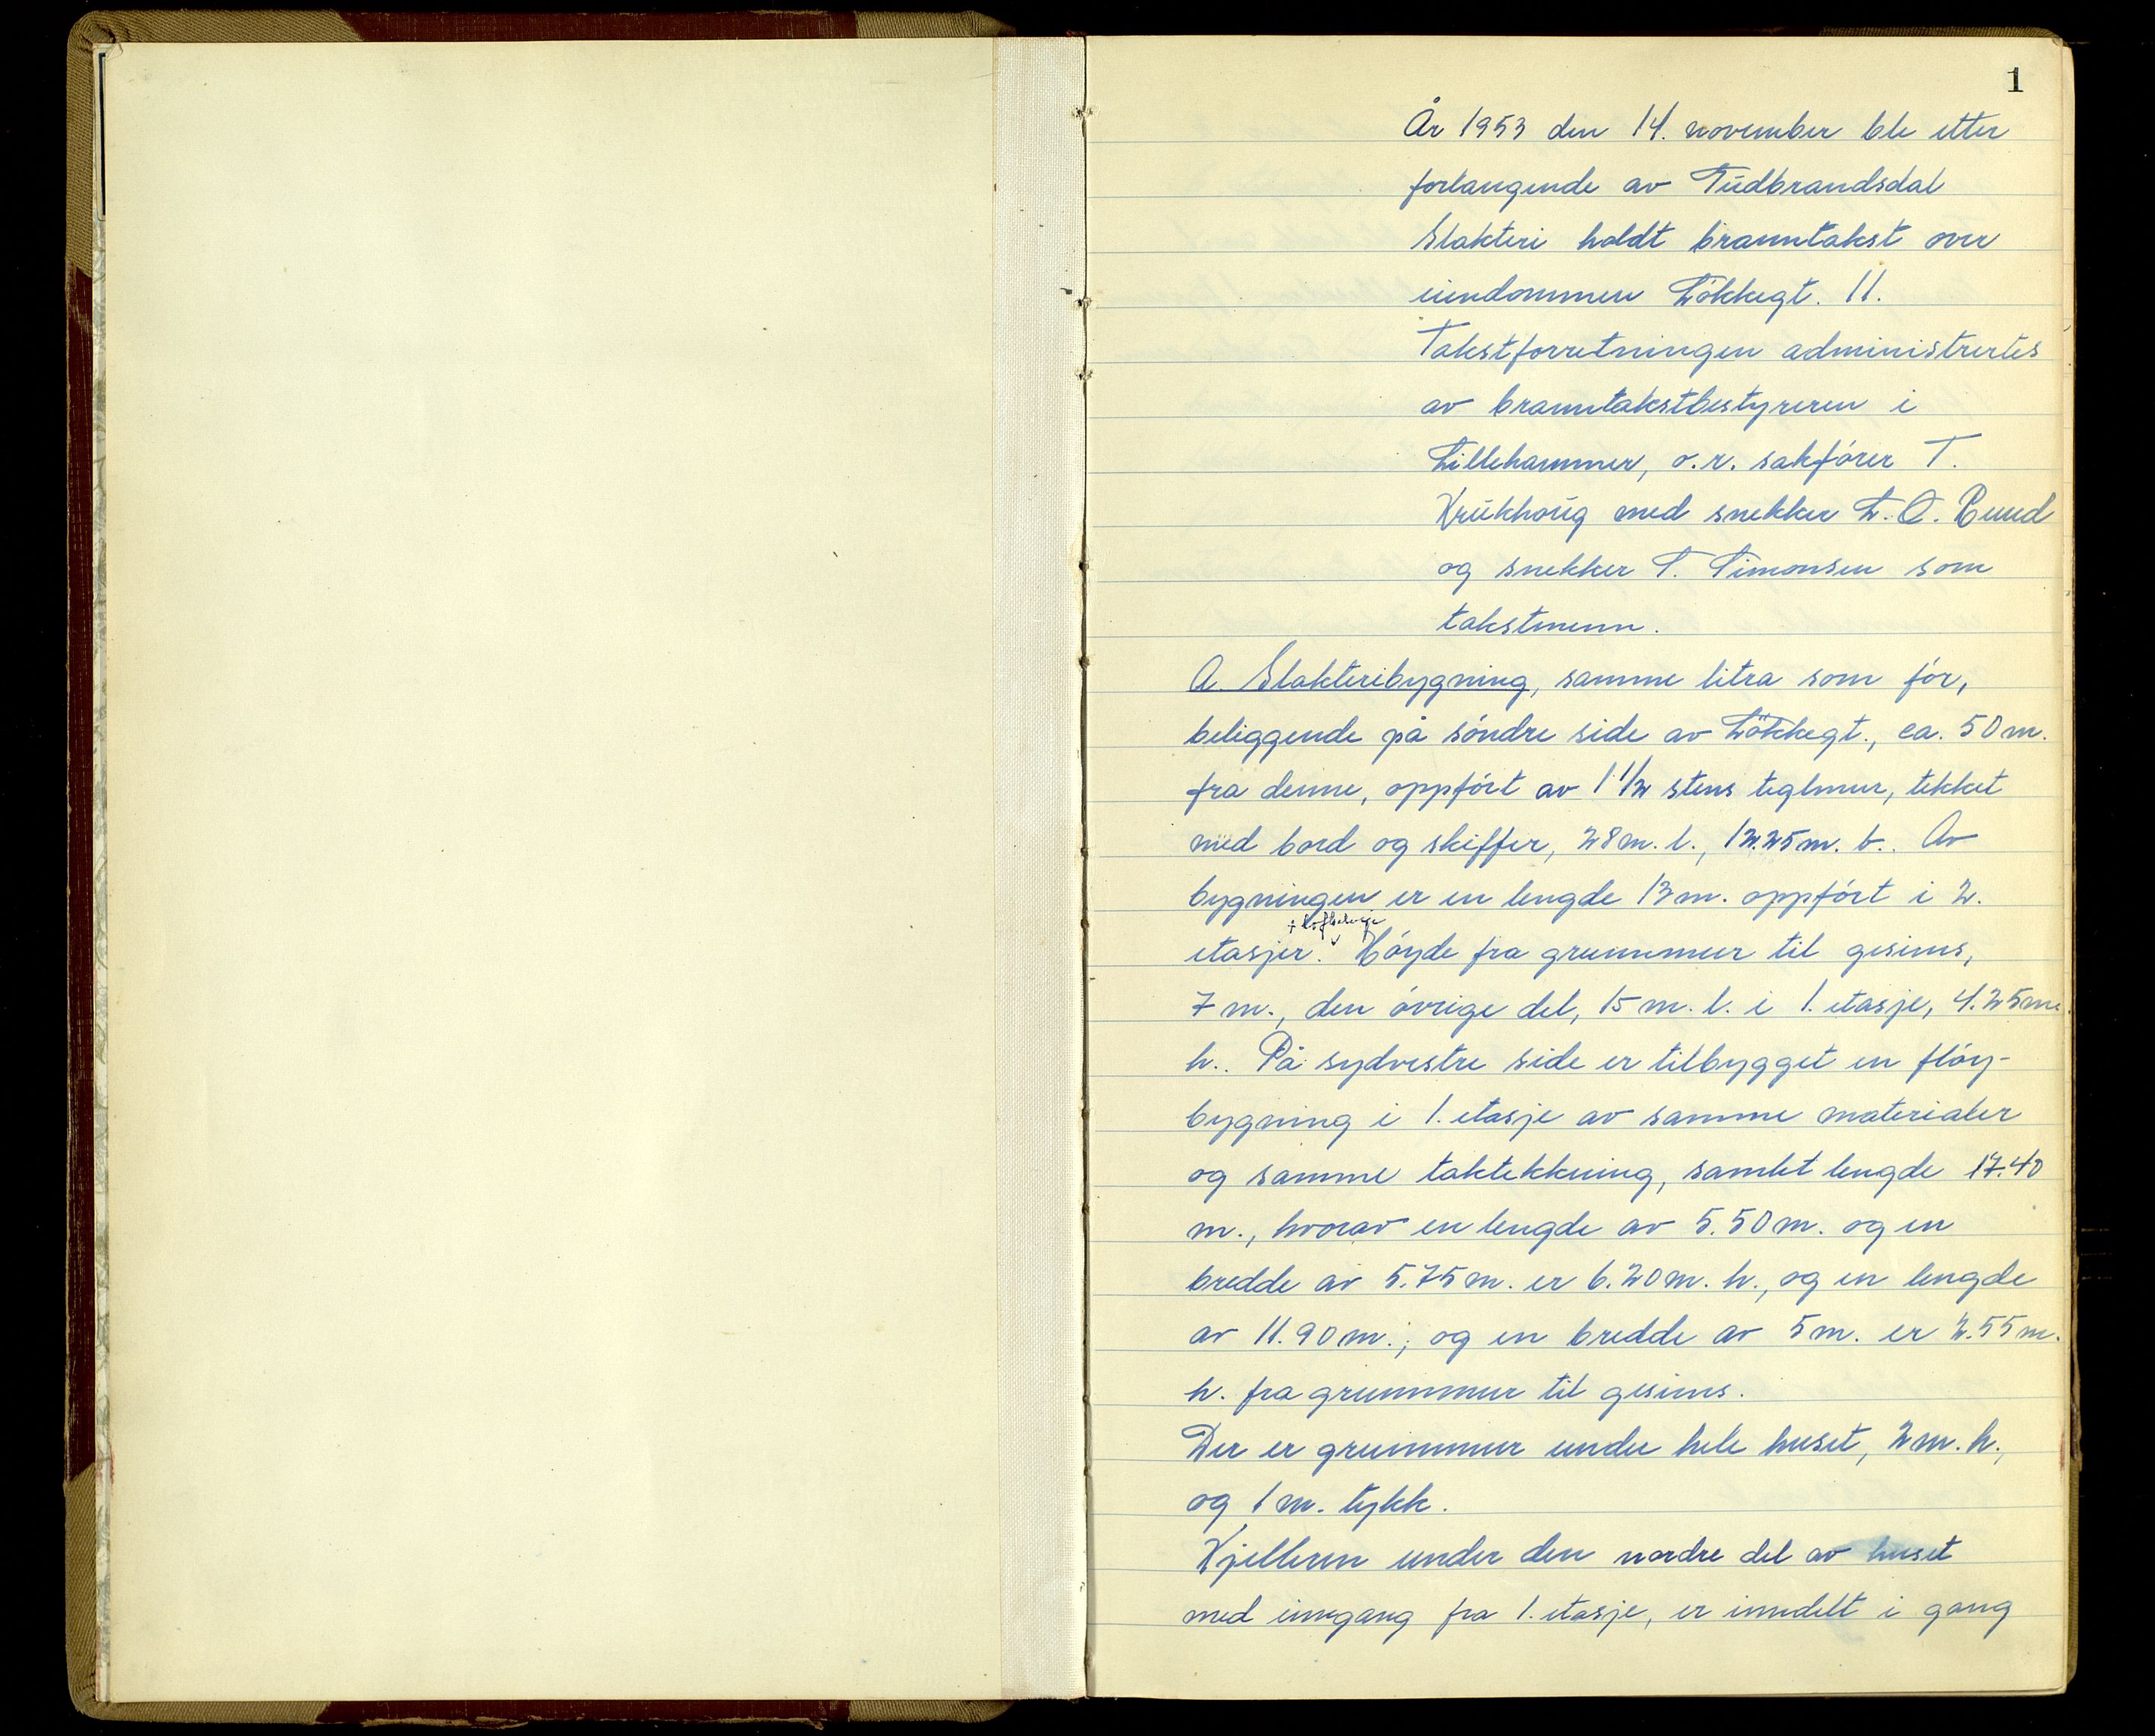 1
År 1953 den 14. november ble etter
forlangende av Gudbrandsdal
Slakteri holdt branntakst over
eiendommen Lökkegt. 11.
Takstforretningen administrertes
av branntakstbestyreren i
Lillehammer, o.r. sakfører T.
Krükhoug med snekker L. O. Ruud
og snekker S. Simonsen som
takstmenn.
A. Slakteribygning, samme litra som før,
beliggende på søndre side av Lökkegt., ca. 50 m.
fra denne, oppført av 1 1/2 stens teglmur, tekket
med bord og skiffer, 28 m. l., 12.25 m. b.. Av
bygningen er en lengde 13 m. oppført i 2.
+ loftsetasje
etasjer. Høyde fra grunnmur til gesims,
7 m., den øvrige del, 15 m. l. i 1. etasje, 4.25 m.
h.. På sydvestre side er tilbygget en fløy-
bygning i 1. etasje av samme materialer
og samme taktekkning, samlet lengde 17.40
m., hvorav en lengde av 5.50 m. og en
bredde av 5.75 m. er 6.20 m. h., og en lengde
av 11.90 m., og en bredde av 5 m. er 2.55 m.
h. fra grunnmur til gesims.
Der er grunnmur under hele huset, 2 m. h.,
og 1 m. tykk.
Kjelleren under den nordre del av huset
med inngang fra 1. etasje, er inndelt i gang